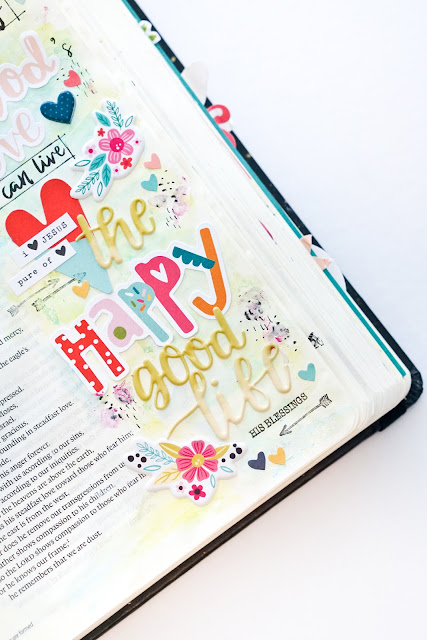 God's
can live
i JESUS
pure of
the
Happy
good
life
HIS BLESSINGS
mercy,
the eagle's.
gracious,
in steadfast love.
his anger forever.
with us according to our sins,
according to our iniquities.
the heavens are above the earth,
is his steadfast love toward those who fear him;
the east is from the west,
does he remove our transgressions from us.
shows compassion to his children,
the LORD shows compassion to those who fear
he knows our frame;
he remembers that we are dust.